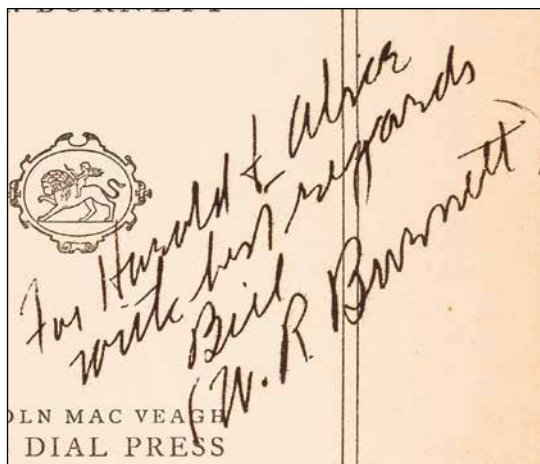 . BURNETT
For Harold & Alice
with best regards
Bill
(W. R. Burnett)
OLN MAC VEAGH
DIAL PRESS